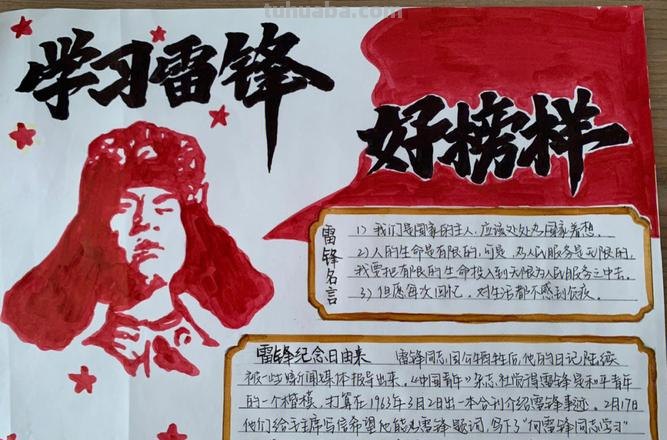 tuhuaba.com
学习雷锋
好榜样
雷锋名言
1) 我们是国家的主人,应该处处为国家着想。
2) 人的生命是有限的,可是,为人民服务是无限的,
我要把有限的生命投入到无限为人民服务之中去。
3) 但愿每次回忆,对生活都不感到负疚。
雷锋纪念日由来
雷锋同志因公牺牲后,他的日记陆续
被一些新闻媒体报导出来。《中国青年》杂志社觉得雷锋是和平青年
的一个楷模,打算在1963年3月2日出一本合刊介绍雷锋事迹。2月17日
他们给主席写信希望他能为雷锋题词,写了“向雷锋同志学习”